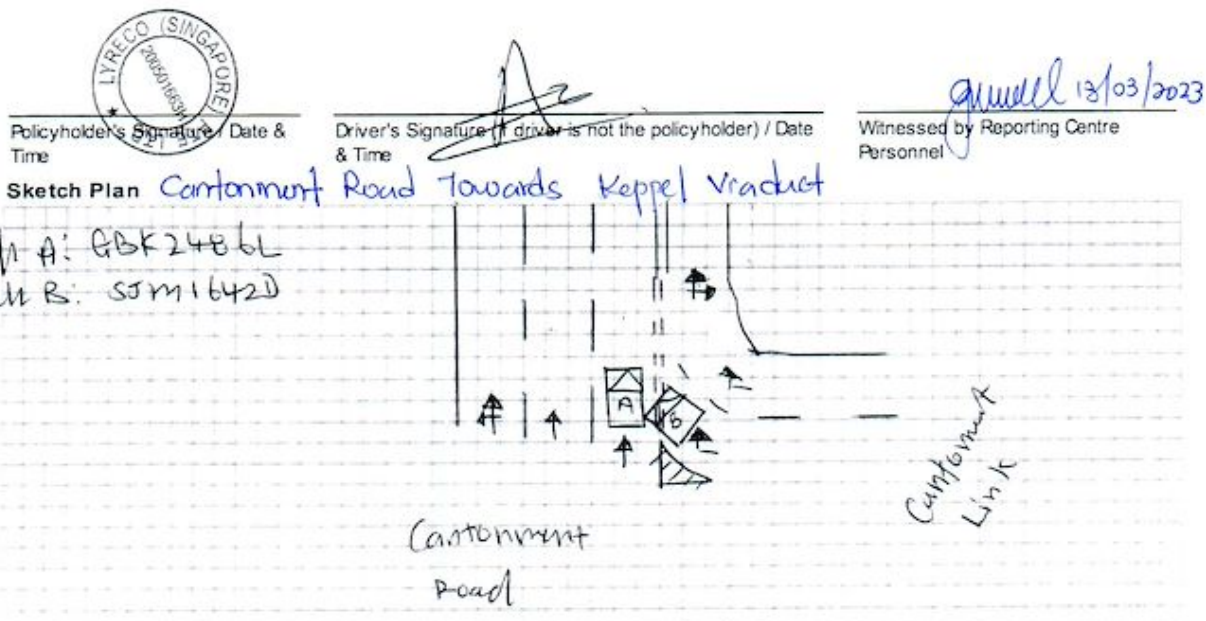 LYRECO (SINGAPORE) PTE LTD
200501663H
13/03/2023
Policyholder's Signature / Date &
Time
Driver's Signature (if driver is not the policyholder) / Date
& Time
Witnessed by Reporting Centre
Personnel
Sketch Plan Cantonment Road Towards Keppel Viaduct
A: GBK2486L
B: SJM1642D
A
B
Cantonment
Link
Cantonment
Road